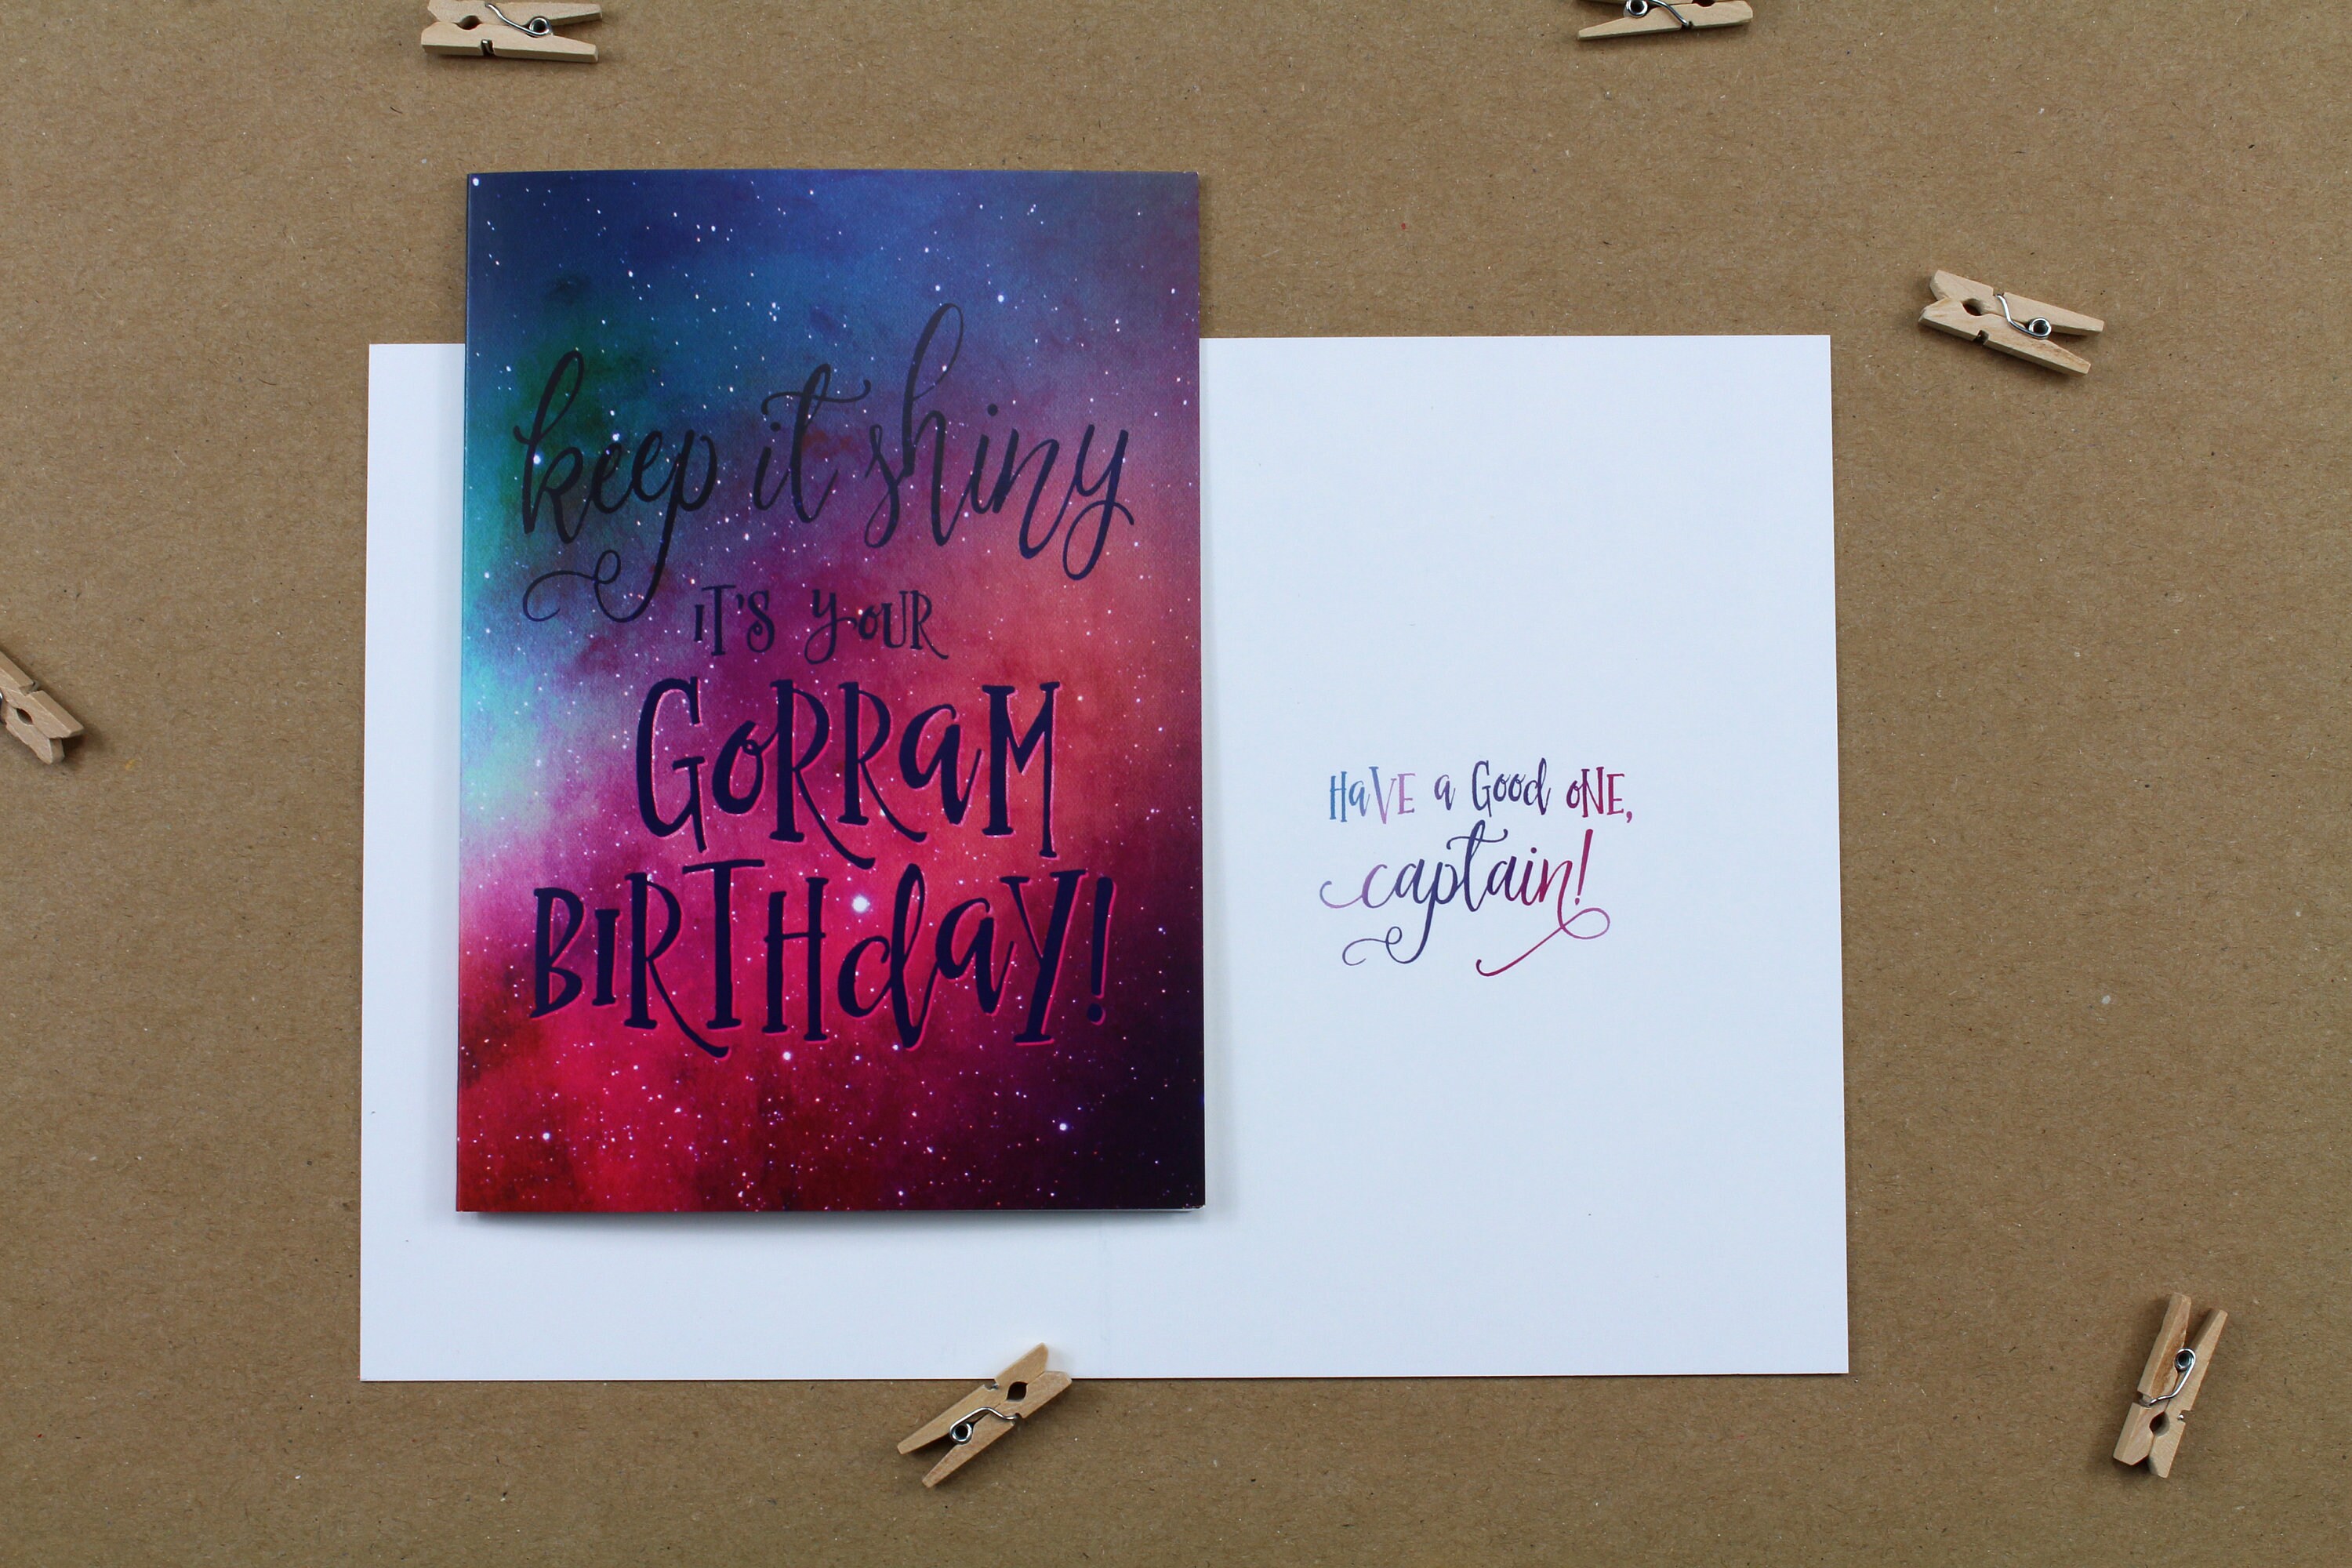 keep it shiny
IT'S YOUR
GORRaM
BIRTHdaY!
HaVE a Good oNE,
captain!